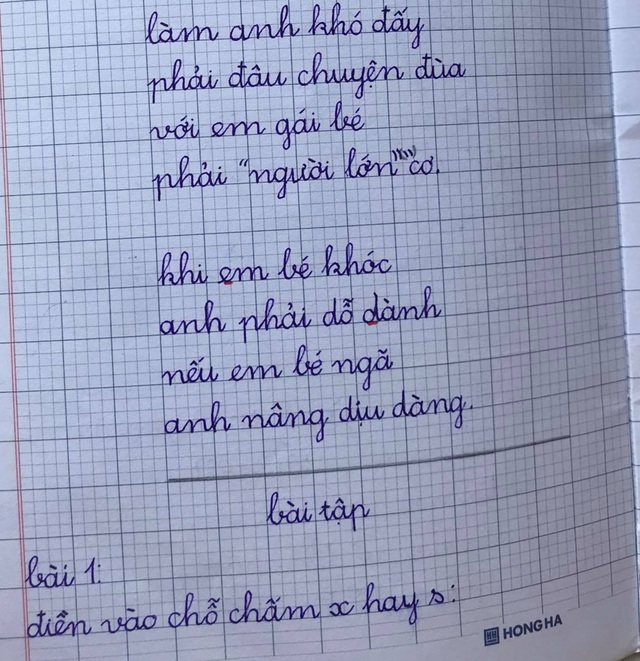 làm anh khó đấy
phải đâu chuyện đùa
với em gái bé
phải "người lớn" cơ.
khi em bé khóc
anh phải dỗ dành
nếu em bé ngã
anh nâng dịu dàng.
bài tập
bài 1:
điền vào chỗ chấm x hay s:
HONG HA